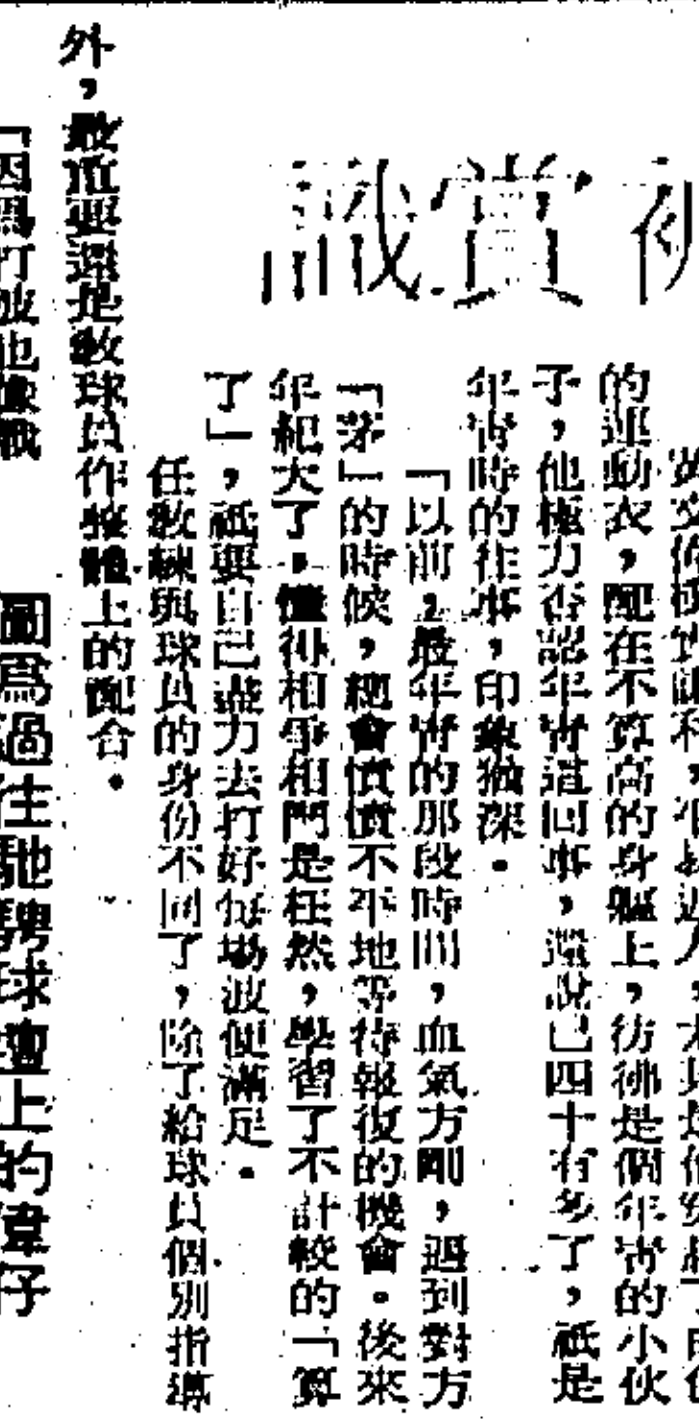 賞識
的運動衣，配在不算高的身軀上，彷彿是個年青的小伙
子，他極力否認年青這回事，還說已四十有多了，祇是
年青時的往事，印象猶深。
「以前，最年青的那段時間，血氣方剛，遇到對方
「茅」的時候，總會憤憤不平地等待報復的機會。後來
年紀大了，懂得相爭相鬥是枉然，學習了不計較的「算
了」，祇要自己盡力去打好每場波便滿足。
任教練與球員的身份不同了，除了給球員個別指導
外，最重要還是教球員作整體上的配合。
「因爲打波也像戰
圖爲過往馳騁球壇上的偉仔